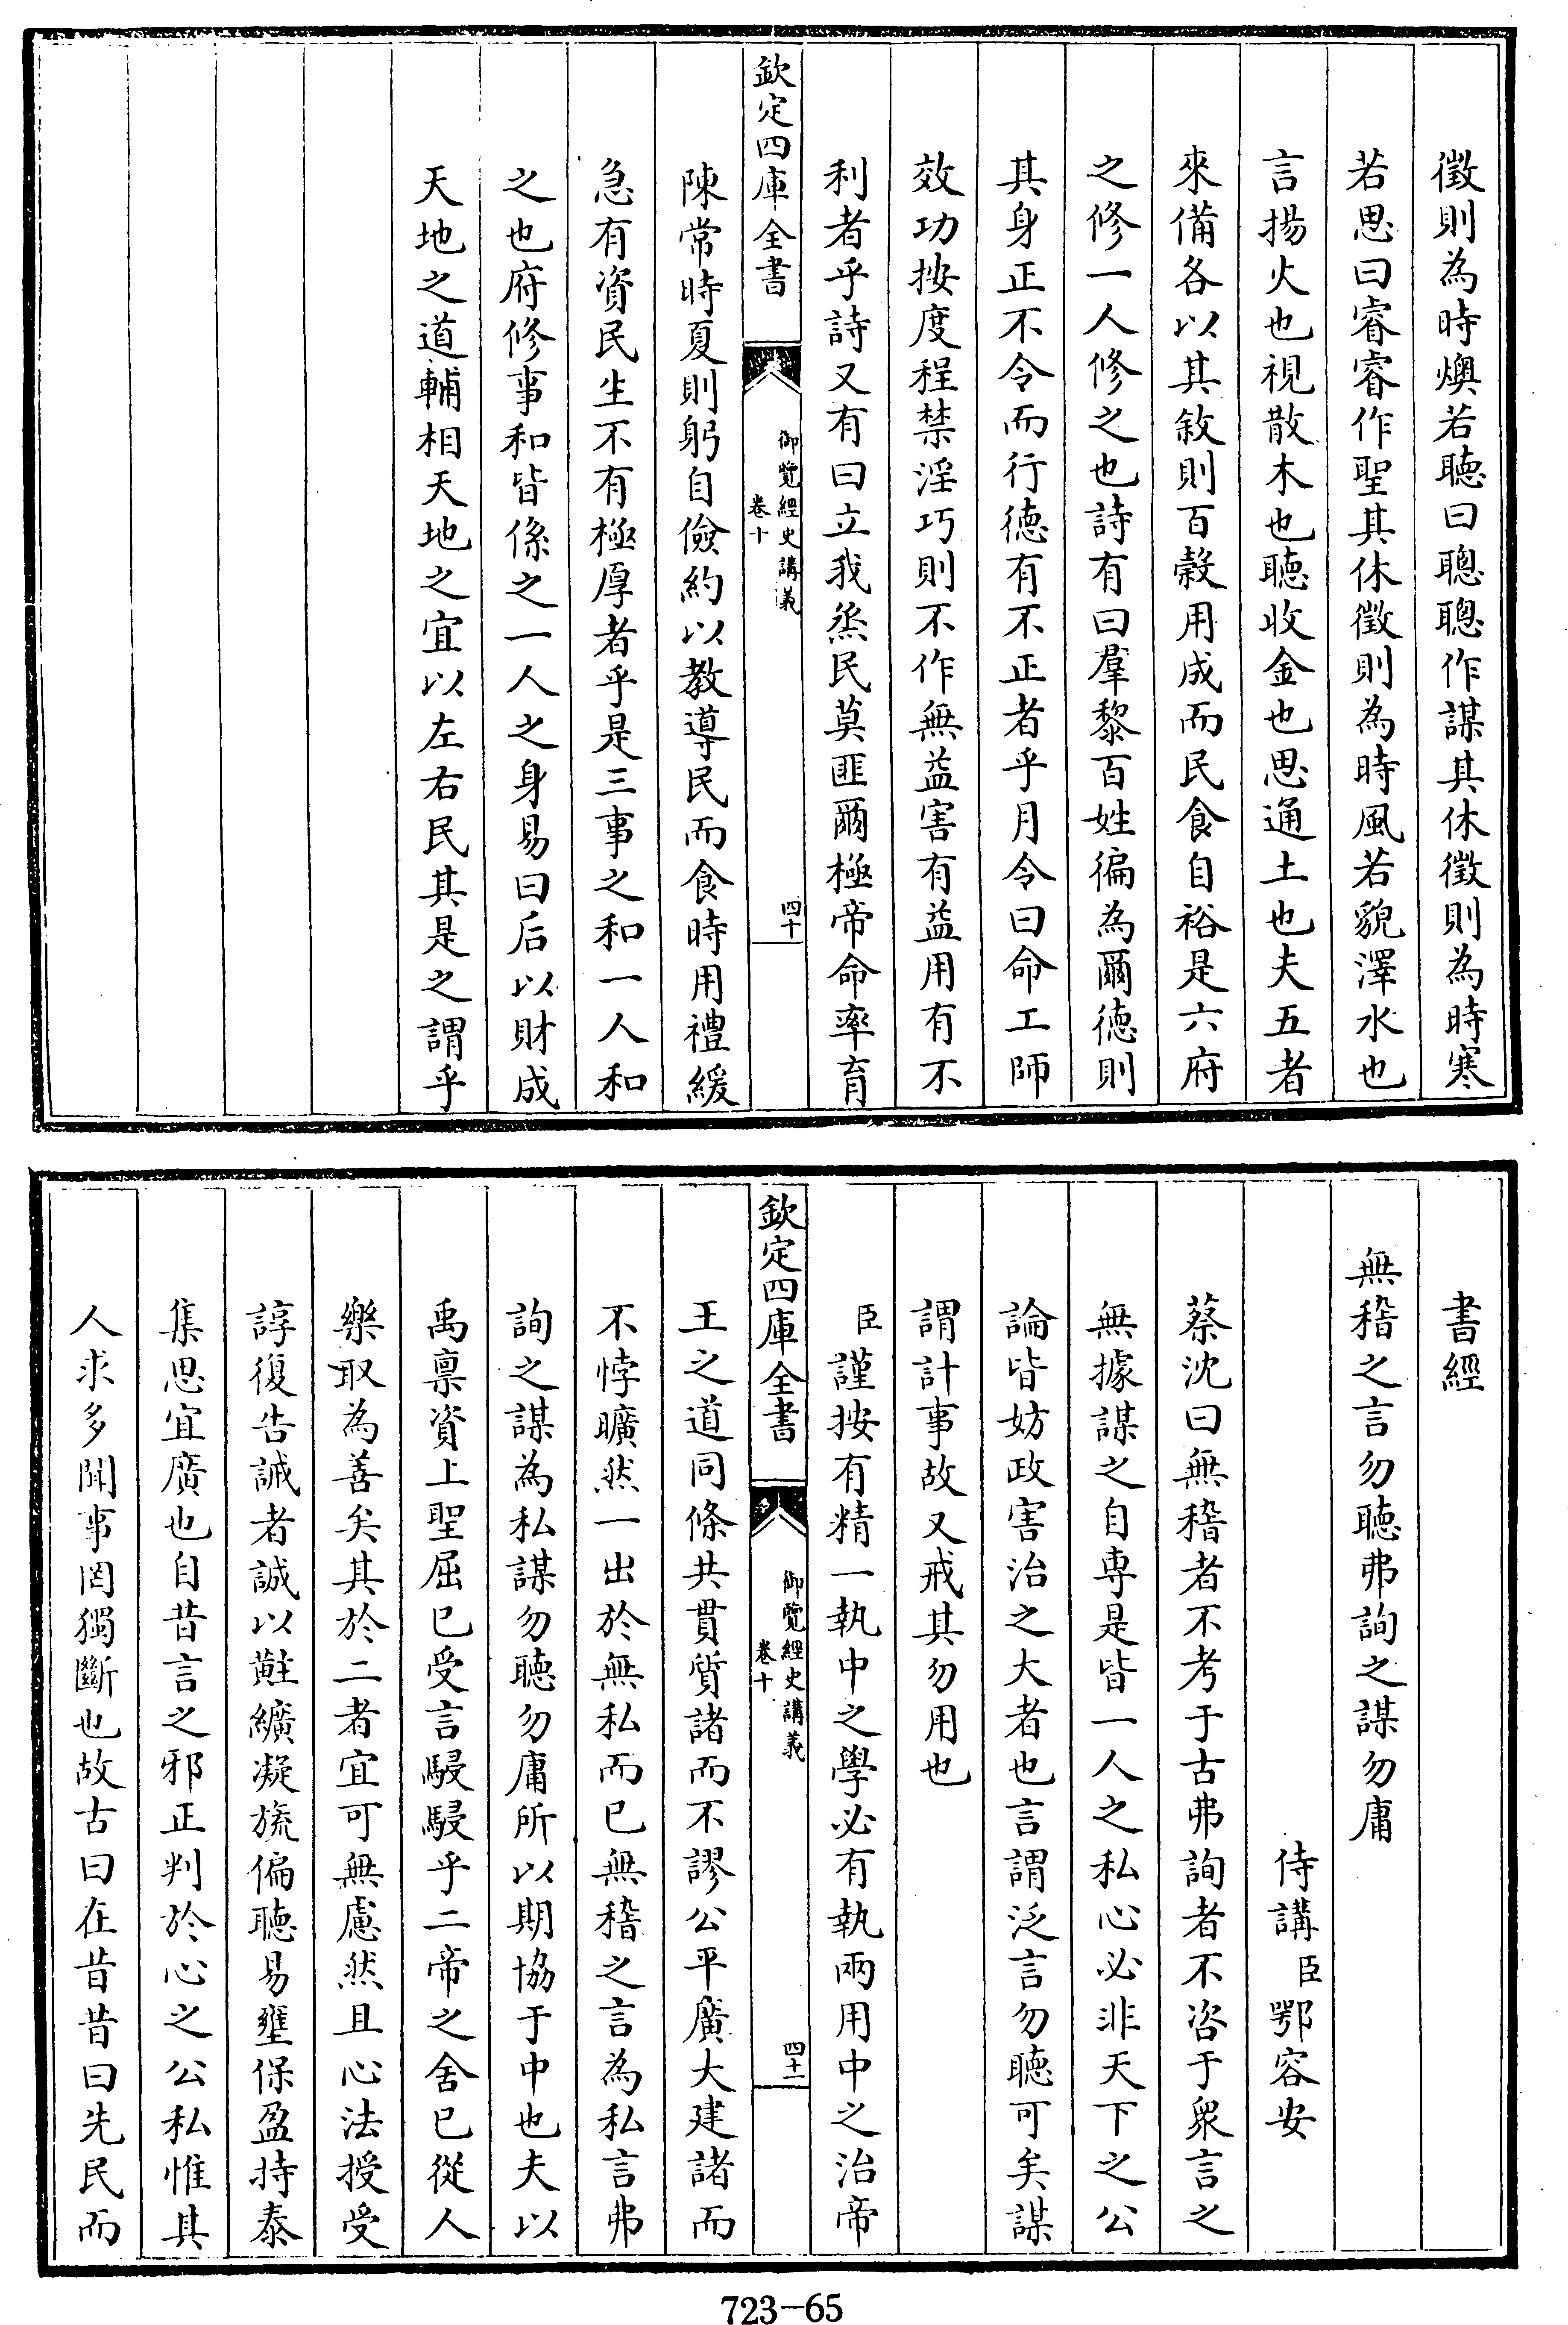 徵則為時燠若聽曰聰聰作謀其休徵則為時寒
若思曰睿睿作聖其休徵則為時風若貌澤水也
言揚火也視散木也聽收金也思通土也夫五者
來備各以其敘則百榖用成而民食自裕是六府
之修一人修之也詩有曰羣黎百姓徧為爾德則
其身正不令而行德有不正者乎月令曰命工師
效功按度程禁淫巧則不作無益害有益用有不
利者乎詩又有曰立我烝民莫匪爾極帝命率育
欽定四庫全書
御覽經史講義
卷十
四十
陳常時夏則躬自儉約以教導民而食時用禮緩
急有資民生不有極厚者乎是三事之和一人和
之也府修事和皆係之一人之身易曰后以財成
天地之道輔相天地之宜以左右民其是之謂乎
書經
無稽之言勿聽弗詢之謀勿庸
侍講臣鄂容安
蔡沈曰無稽者不考于古弗詢者不咨于衆言之
無據謀之自専是皆一人之私心必非天下之公
論皆妨政害治之大者也言謂泛言勿聽可矣謀
謂計事故又戒其勿用也
臣謹按有精一執中之學必有執兩用中之治帝
欽定四庫全書
御覽經史講義
卷十
四十一
王之道同條共貫質諸而不謬公平廣大建諸而
不悖曠然一出於無私而已無稽之言為私言弗
詢之謀為私謀勿聽勿庸所以期協于中也夫以
禹禀資上聖屈已受言駸駸乎二帝之舍已從人
樂取為善矣其於二者宜可無慮然且心法授受
諄復告誡者誠以黈纊凝旒偏聽易壅保盈持泰
集思宜廣也自昔言之邪正判於心之公私惟其
人求多聞事罔獨斷也故古曰在昔昔曰先民而
723-65